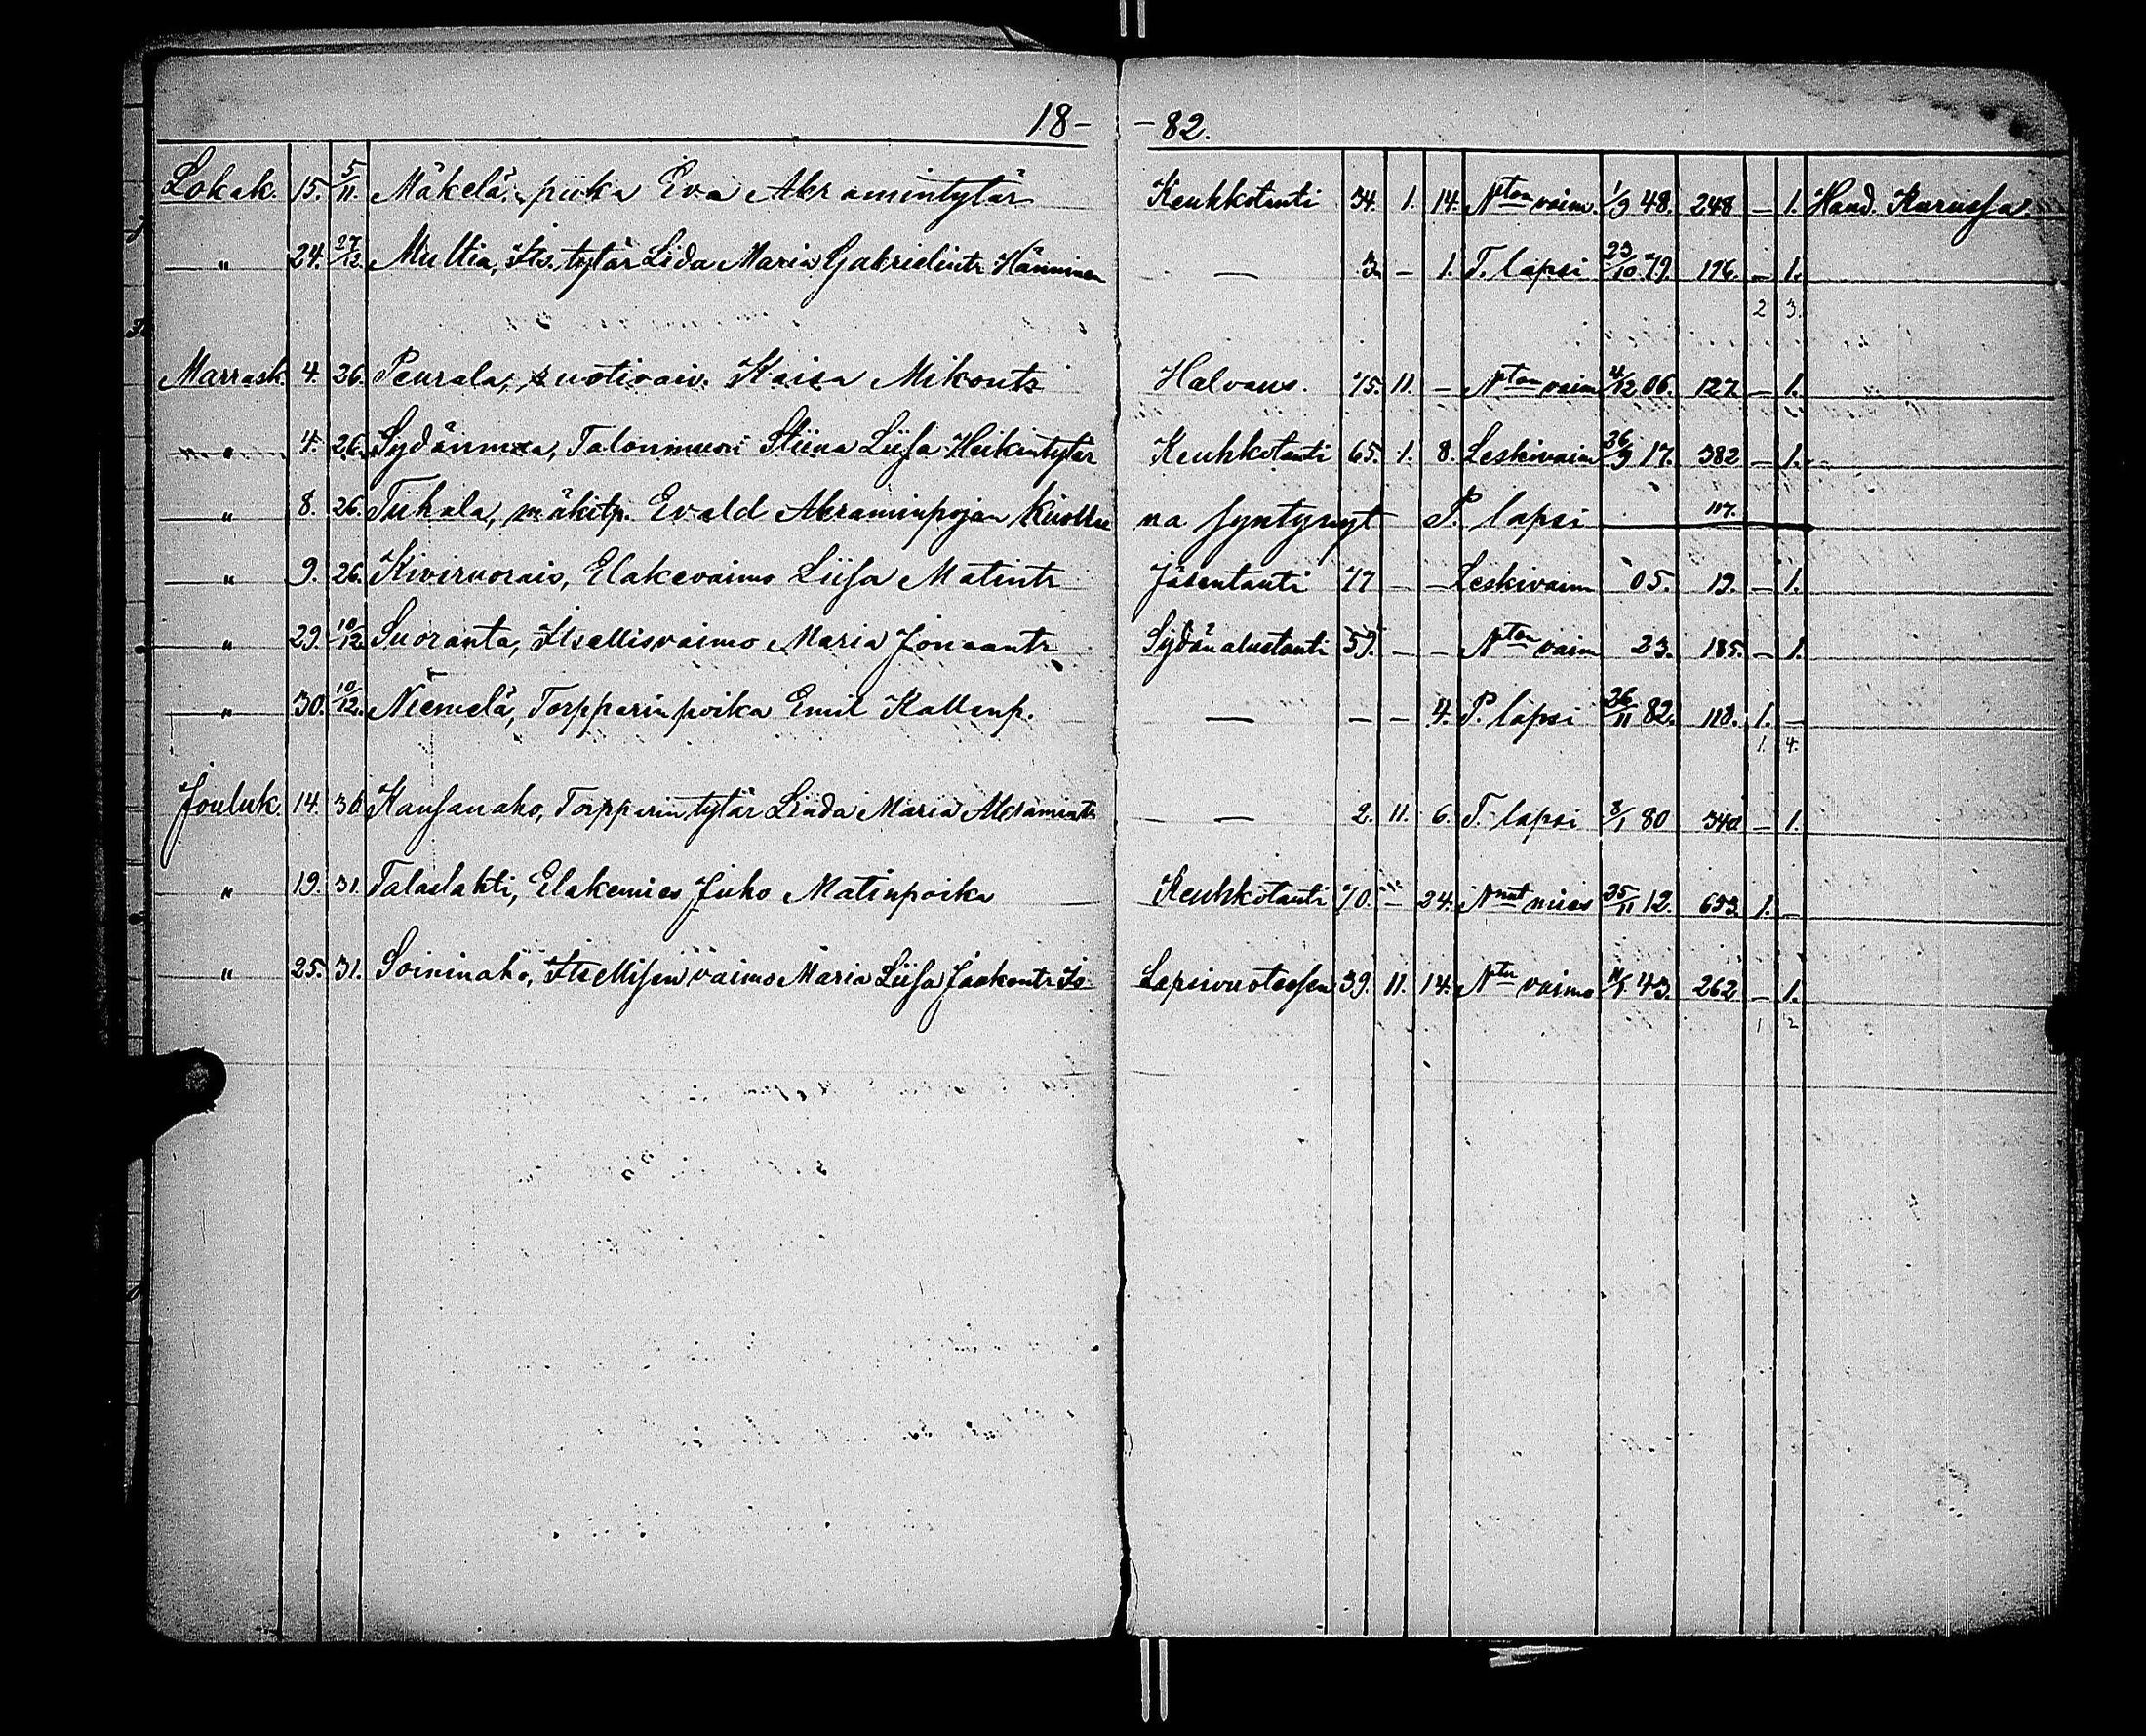 18- -82.
Lokak. 15. 5/11. Mäkelä, piika Eva Abramintytär Keuhkotauti 34. 1. 14. Nton vaim. 1/9 48. 248 — 1. Haud. Kurussa.
" 24. 27/12. Multia, Its. tytär Lida Maria Gabrielintr Hänninen — 3. — 1. T. lapsi 23/10 79. 196. — 1.
2 3.
Marrask. 4. 26. Peurala, ruotivaiv. Kaisa Mikontr Halvaus. 75. 11. — Nton vaim 4/12 06. 127. — 1.
" 4. 26. Sydänmaa, Talonmuori Stiina Liisa Heikintytär Keuhkotauti 65. 1. 8. Leskivaim 26/9 17. 382 — 1.
" 8. 26. Tiihala, mäkitp. Evald Abraminpojan kuollee na syntynyt P. lapsi 117.
" 9. 26. Kiviruorais, Elakevaimo Liisa Matintr Jäsentauti 77 — — Leskivaim 05. 19. — 1.
" 29. 10/12. Suoranta, Itsellisvaimo Maria Jonaantr Sydänalustauti 59. — — Nton vaim 23. 185. — 1.
" 30. 10/12. Niemelä, Torpparinpoika Emil Kallenp. — — — 4. P. lapsi 26/11 82. 118. 1. —
1. 4.
Jouluk. 14. 36 Kansanaho, Torpparintytär Linda Maria Abramintr — 2. 11. 6. T. lapsi 8/1 80 340 — 1.
" 19. 31. Talaslahti, Elakemies Juho Matinpoika Keuhkotauti 70. — 24. Nnut mies 25/11 12. 653 1. —
" 25. 31. Soininaho, Itsellisen vaimo Maria Liisa Jaakontr Is. Lapsivuoteesen 39. 11. 14. Ntu vaimo 11/1 43. 262 — 1.
1 2